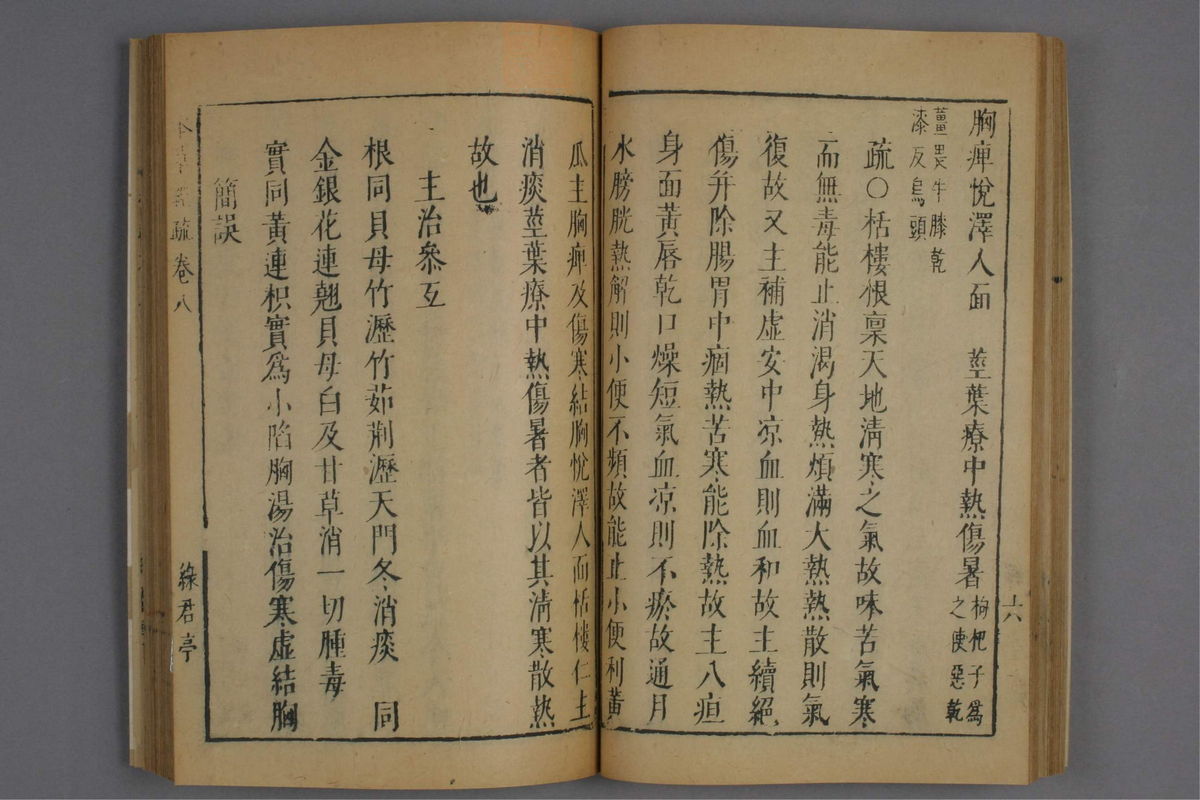 胸痺悅澤人面　莖葉療中熱傷暑枸杞子爲之使惡乾
薑畏牛膝乾漆反烏頭
疏〇栝樓根稟天地清寒之氣故味苦氣寒
而無毒能止消渴身熱煩滿大熱熱散則氣
復故又主補虛安中凉血則血和故主續絕
傷并除腸胃中痼熱苦寒能除熱故主八疸
身面黃唇乾口燥短氣血凉則不瘀故通月
水膀胱熱解則小便不頻故能止小便利黃
瓜主胸痺及傷寒結胸悅澤人面栝樓仁主
消痰莖葉療中熱傷暑者皆以其清寒散熱
故也
主治參互
根同貝母竹瀝竹茹荊瀝天門冬消痰　同
金銀花連翹貝母白及甘草消一切腫毒
實同黃連枳實爲小陷胸湯治傷寒虛結胸
簡誤
疏 卷八
綠君亭
十六